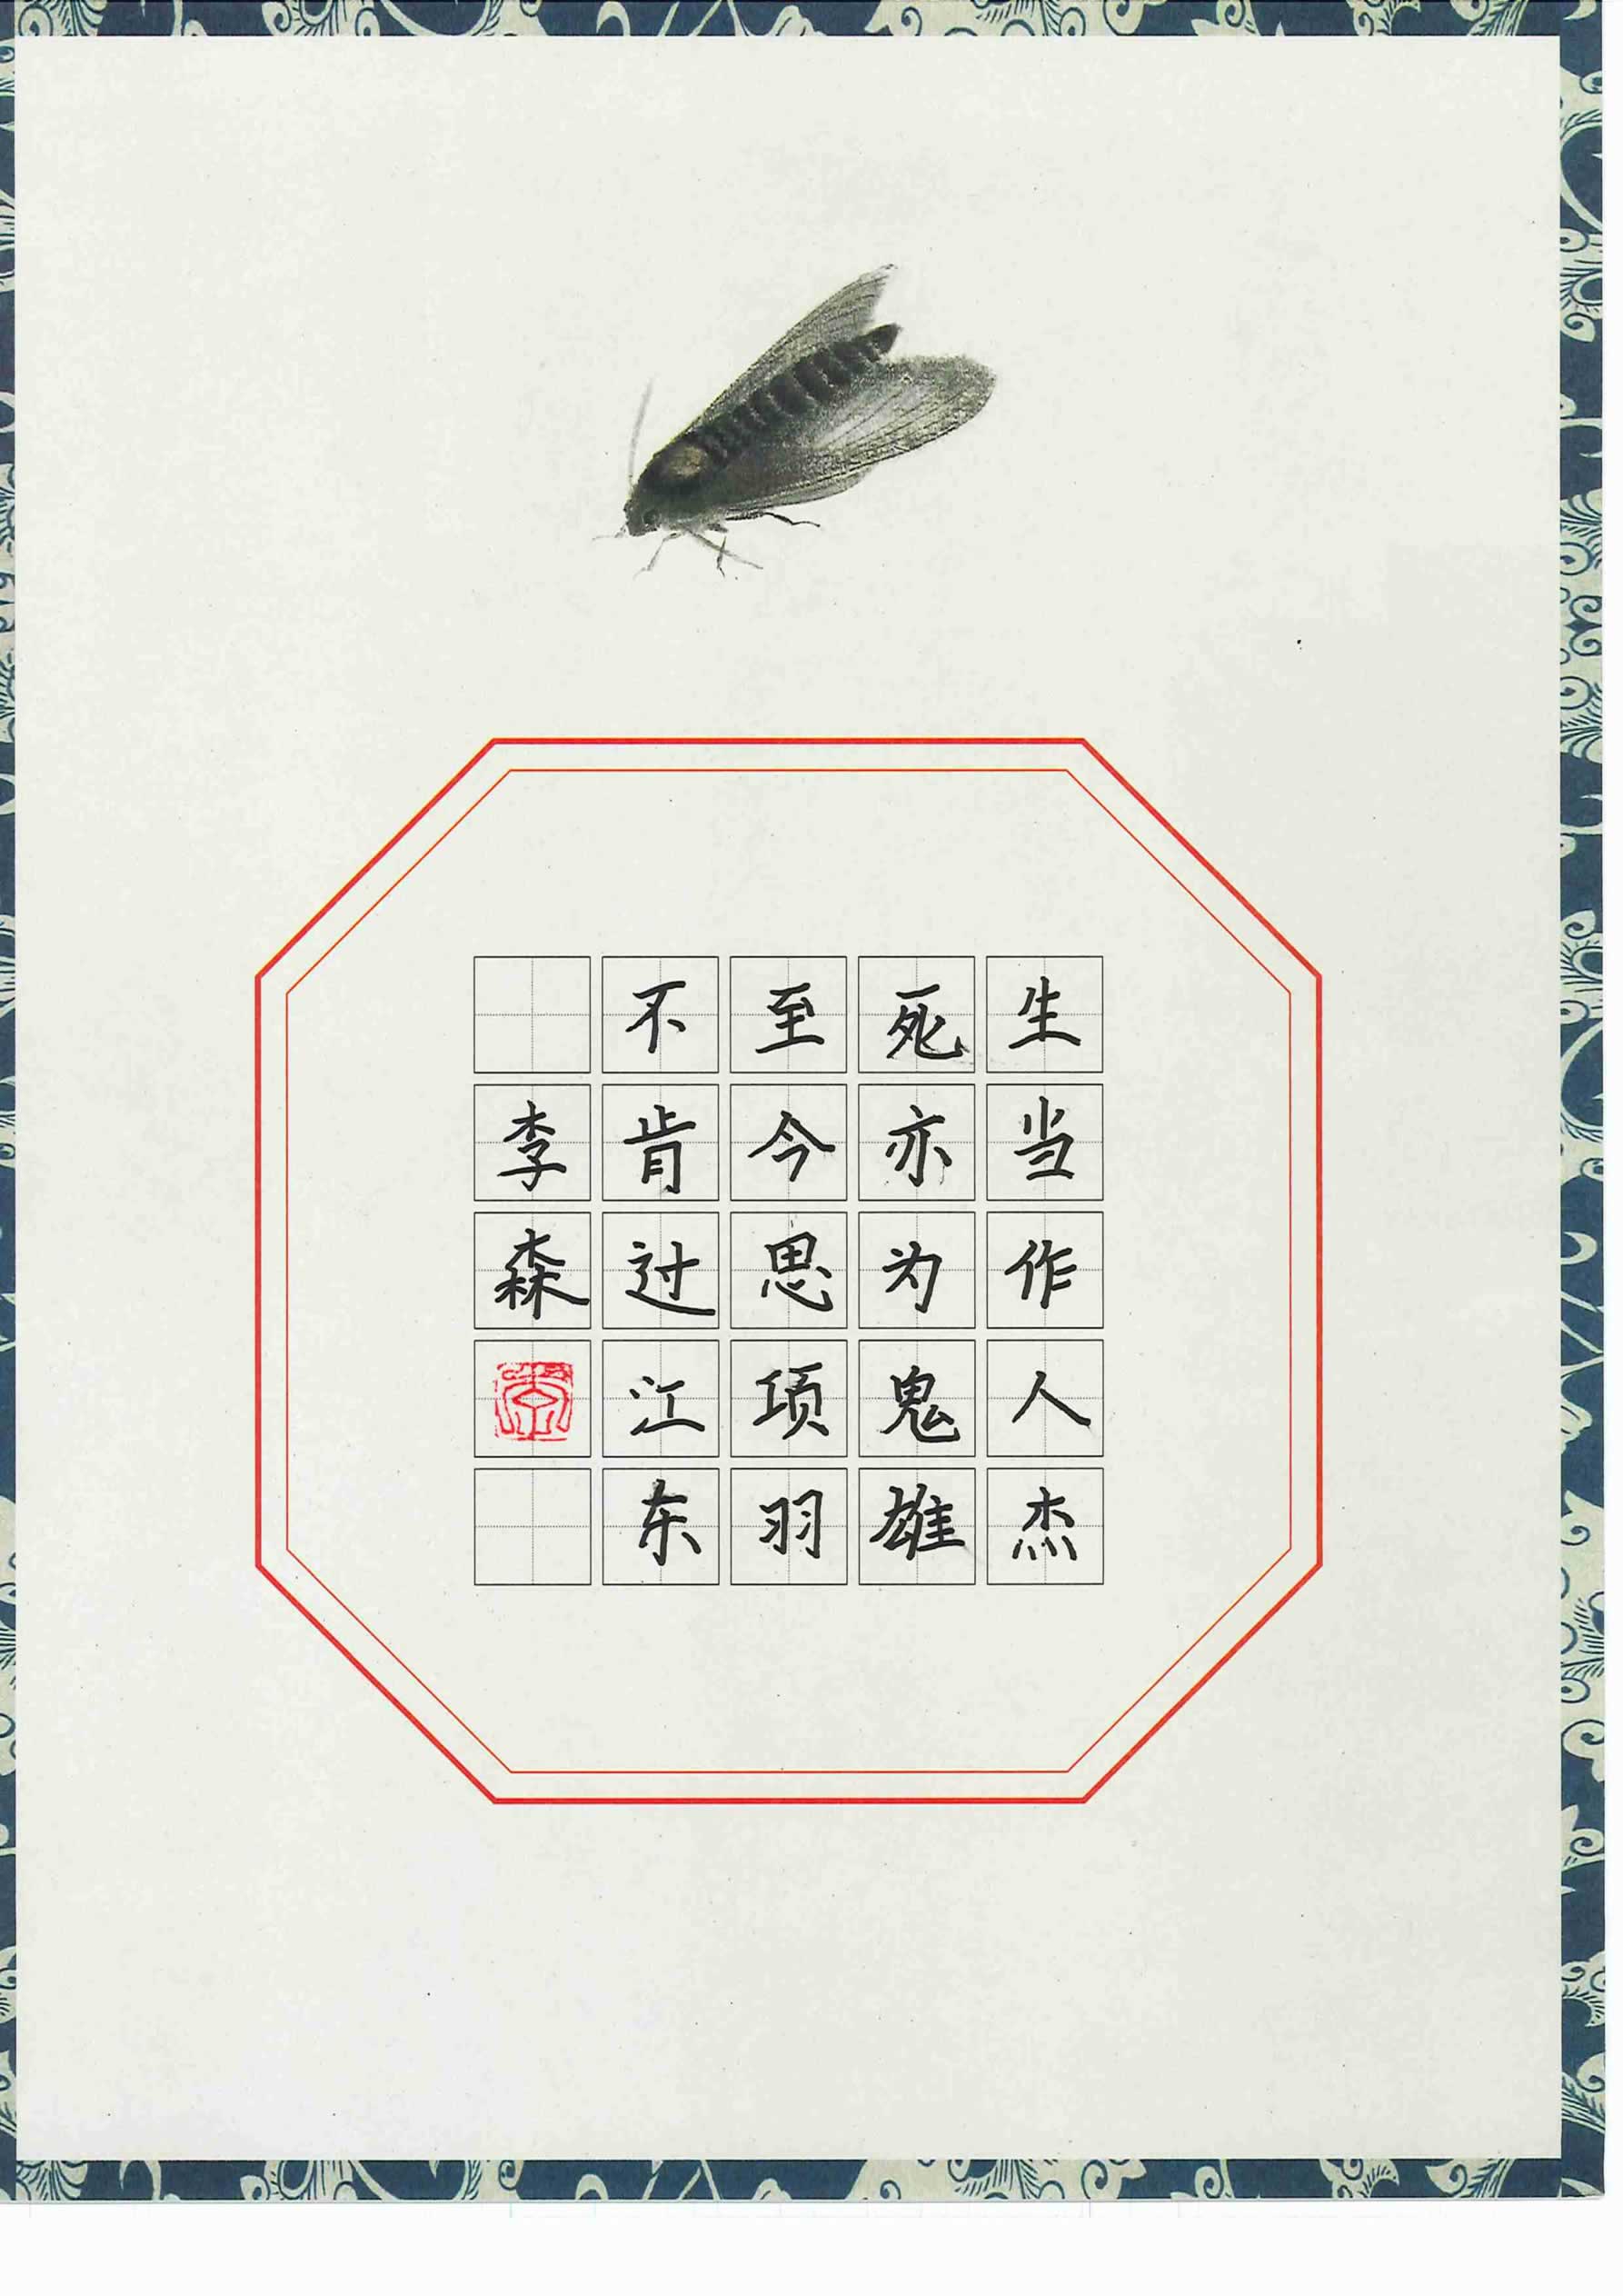 生当作人杰
死亦为鬼雄
至今思项羽
不肯过江东
李森